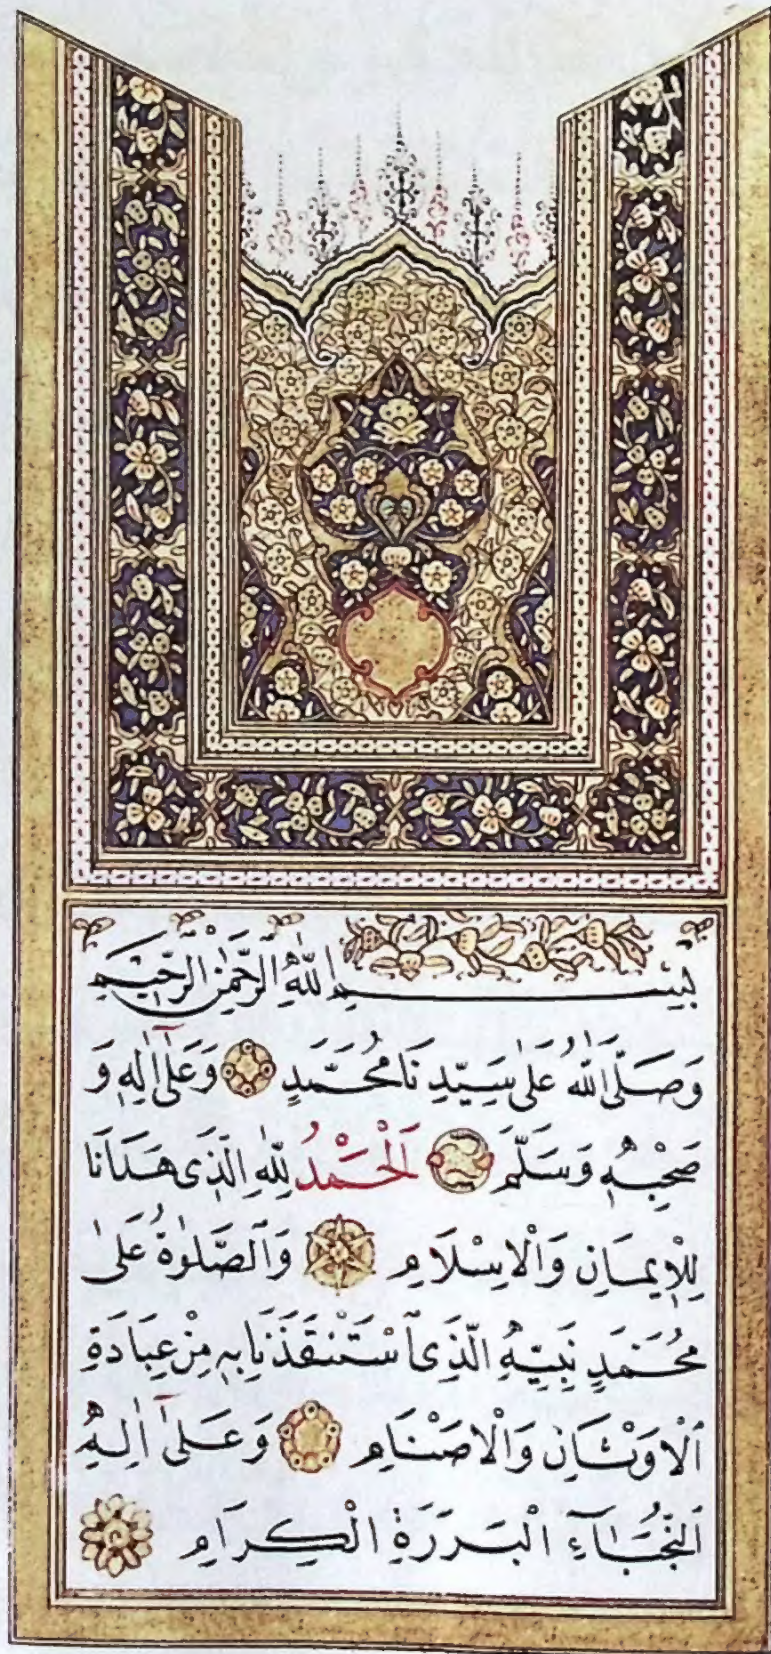 بِسْمِ اللّٰهِ الرَّحْمٰنِ الرَّحِيمِ
وَصَلَّى اللّٰهُ عَلٰى سَيِّدِنَا مُحَمَّدٍ وَعَلٰٓى اٰلِهٖ وَ
صَحْبِهٖ وَسَلَّمَ اَلْحَمْدُ لِلّٰهِ الَّذِى هَدَانَا
لِلْاِيمَانِ وَالْاِسْلَامِ وَالصَّلٰوةُ عَلٰى
مُحَمَّدٍ نَبِيِّهِ الَّذِى اسْتَنْقَذَنَا بِهٖ مِنْ عِبَادَةِ
الْاَوْثَانِ وَالْاَصْنَامِ وَعَلٰٓى اٰلِهِ
النُّجَبَآءِ الْبَرَرَةِ الْكِرَامِ